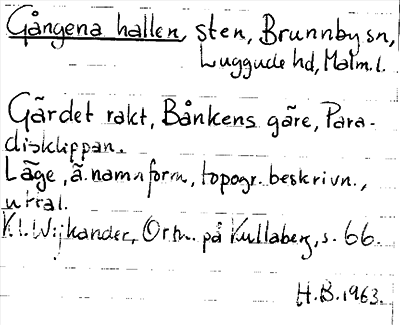 Gångena hallen, sten, Brunnby sn,
Luggude hd, Malm.l.
Gärdet rakt, Bånkens gäre, Para-
disklippan.
Läge, ä. namnform, topogr. beskrivn.,
uttal.
K.I. Wijkander, Ortn. på Kullaberg, s. 66.
H.B. 1963.